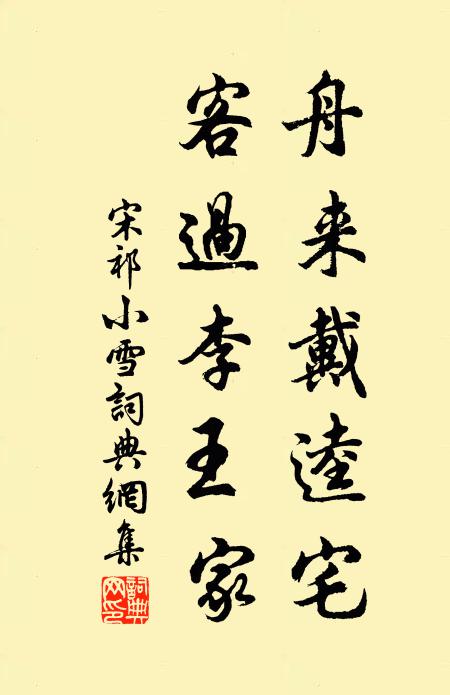 舟来戴逵宅
客過李王家
宋祁小雪詞典網集
詞典網印